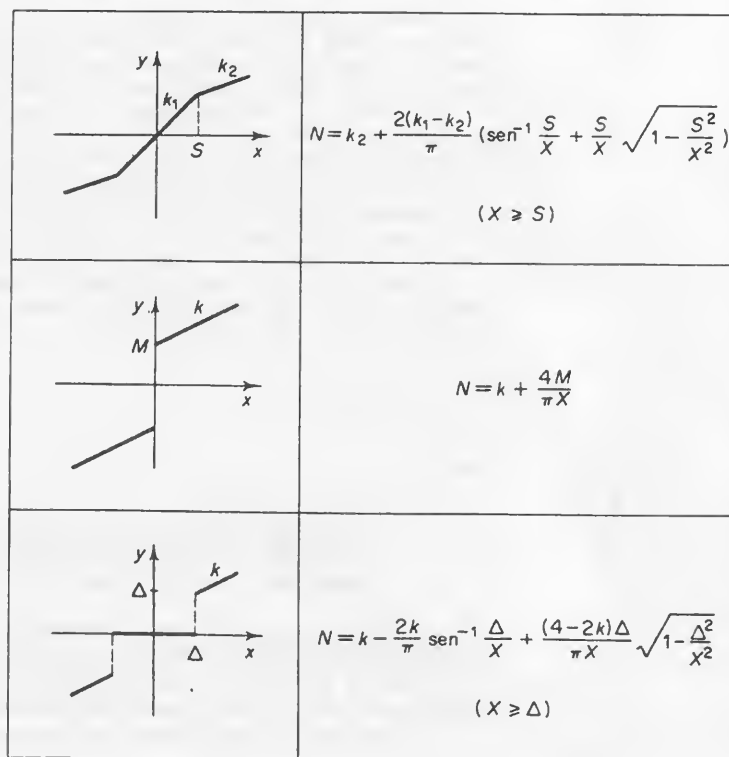 y
k₂
k₁
S
x
N = k₂ + 2(k₁ − k₂)/π (sen⁻¹ S/X + S/X √(1 − S²/X²))
(X ⩾ S)
y
k
M
x
N = k + 4M/πX
y
k
Δ
Δ
x
N = k − 2k/π sen⁻¹ Δ/X + (4 − 2k)Δ/πX √(1 − Δ²/X²)
(X ⩾ Δ)